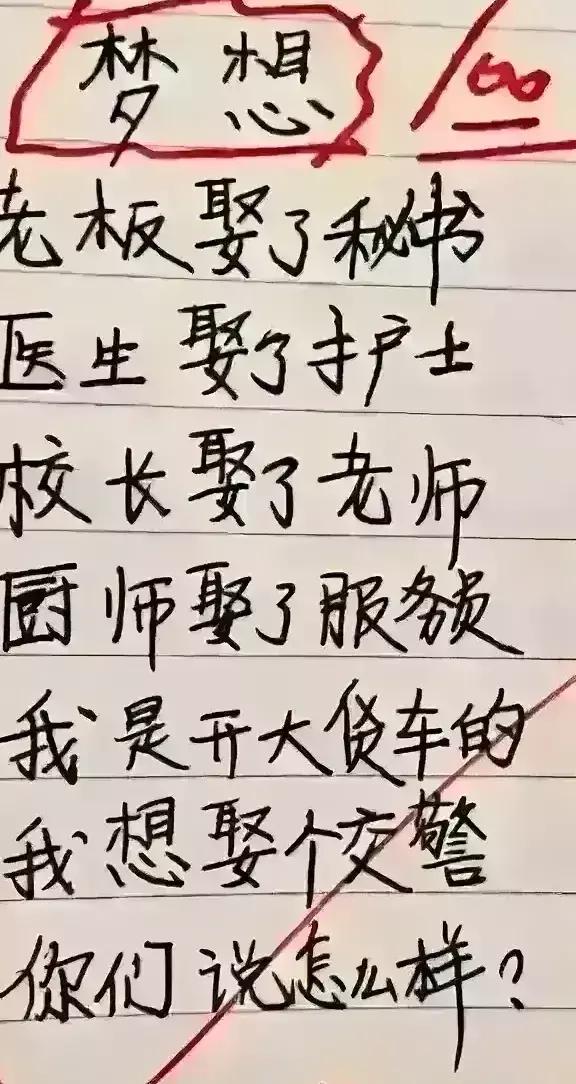 梦想 100
老板娶了秘书
医生娶了护士
校长娶了老师
厨师娶了服务员
我是开大货车的
我想娶个交警
你们说怎么样?